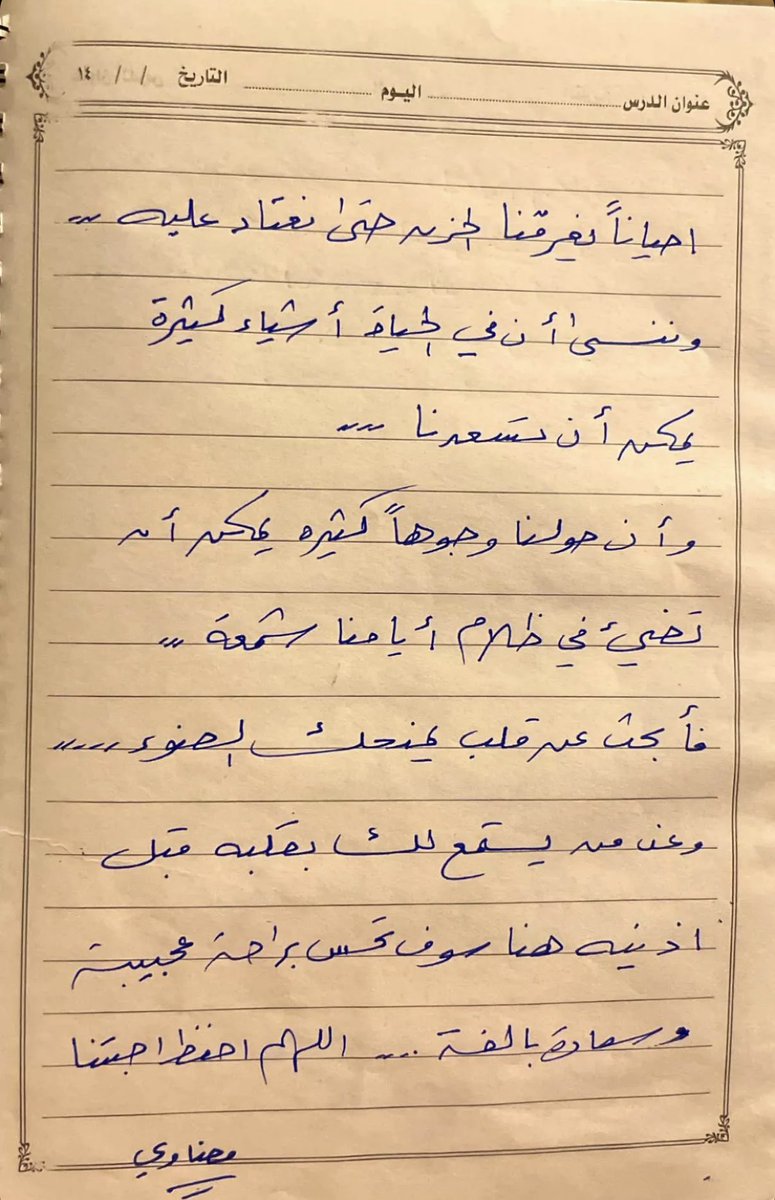 عنوان الدرس ........ اليوم ........ التاريخ / / ١٤
احياناً يغرقنا الحزن حتى نعتاد عليه ,,
وننسى أن في الحياة أشياء كثيرة
يمكن أن تسعدنا ,,,
وأن حولنا وجوهاً كثيره يمكن أن
تضيئ في ظلام أيامنا شمعة ,,
فأبحث عن قلب يمنحك الضوء ,,,,
وعن من يستمع لك بقلبه قبل
اذنيه هنا سوف تحس براحة عجيبة
وسعادة بالغة ... اللهم احفظ احبتنا